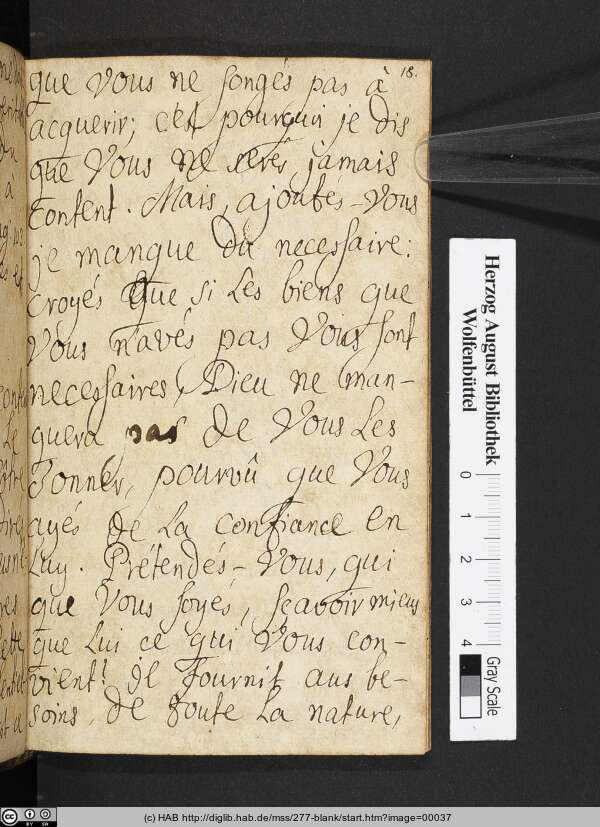 18.
que Vous ne songés pas à
acquerir; c'est pourquoi je dis
que Vous ne serés jamais
Content. Mais, ajoutés-Vous
je manque du necessaire:
Croyés que si Les biens que
Vous n'avés pas Vous sont
necessaires, Dieu ne man-
quera pas de Vous Les
Donner, pourvû que Vous
ayés de La confiance en
Luy. Prétendés-Vous, qui
que Vous soyés, sçavoir mieus
que Lui ce qui Vous con-
vient! il Fournit aus be-
soins, de toute La nature,
Herzog August Bibliothek
Wolfenbüttel
0 1 2 3 4
Gray Scale
(c) HAB http://diglib.hab.de/mss/277-blank/start.htm?image=00037